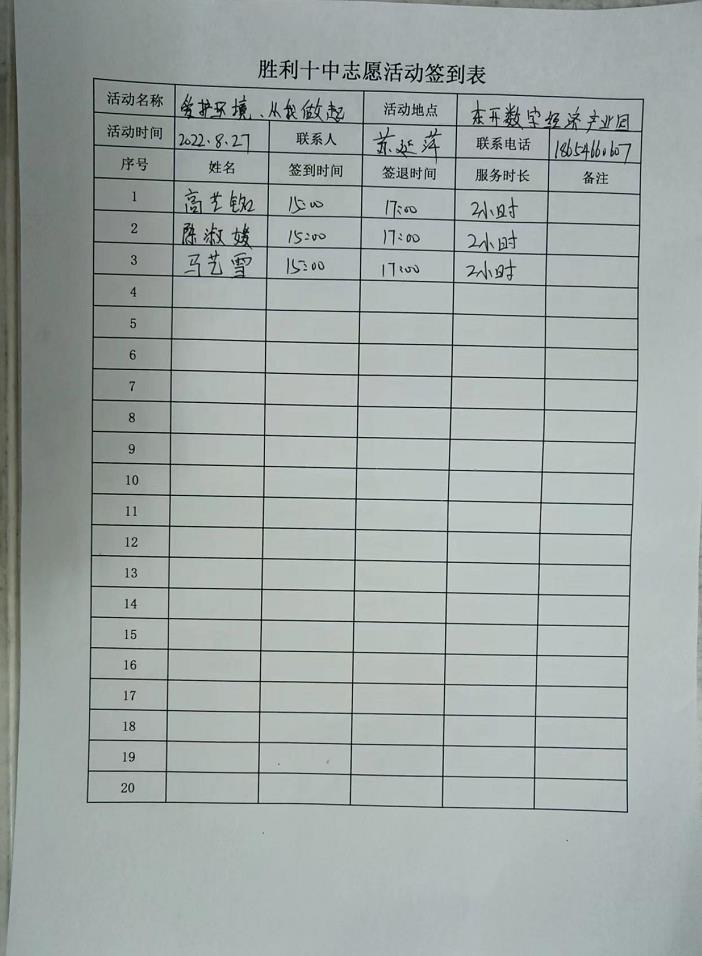 胜利十中志愿活动签到表
活动名称 爱护环境、从我做起 活动地点 东开数字经济产业园
活动时间 2022.8.27 联系人 苏延萍 联系电话 18654660607
序号 姓名 签到时间 签退时间 服务时长 备注
1 高艺铭 15:00 17:00 2小时
2 陈淑媛 15:00 17:00 2小时
3 马艺雪 15:00 17:00 2小时
4
5
6
7
8
9
10
11
12
13
14
15
16
17
18
19
20